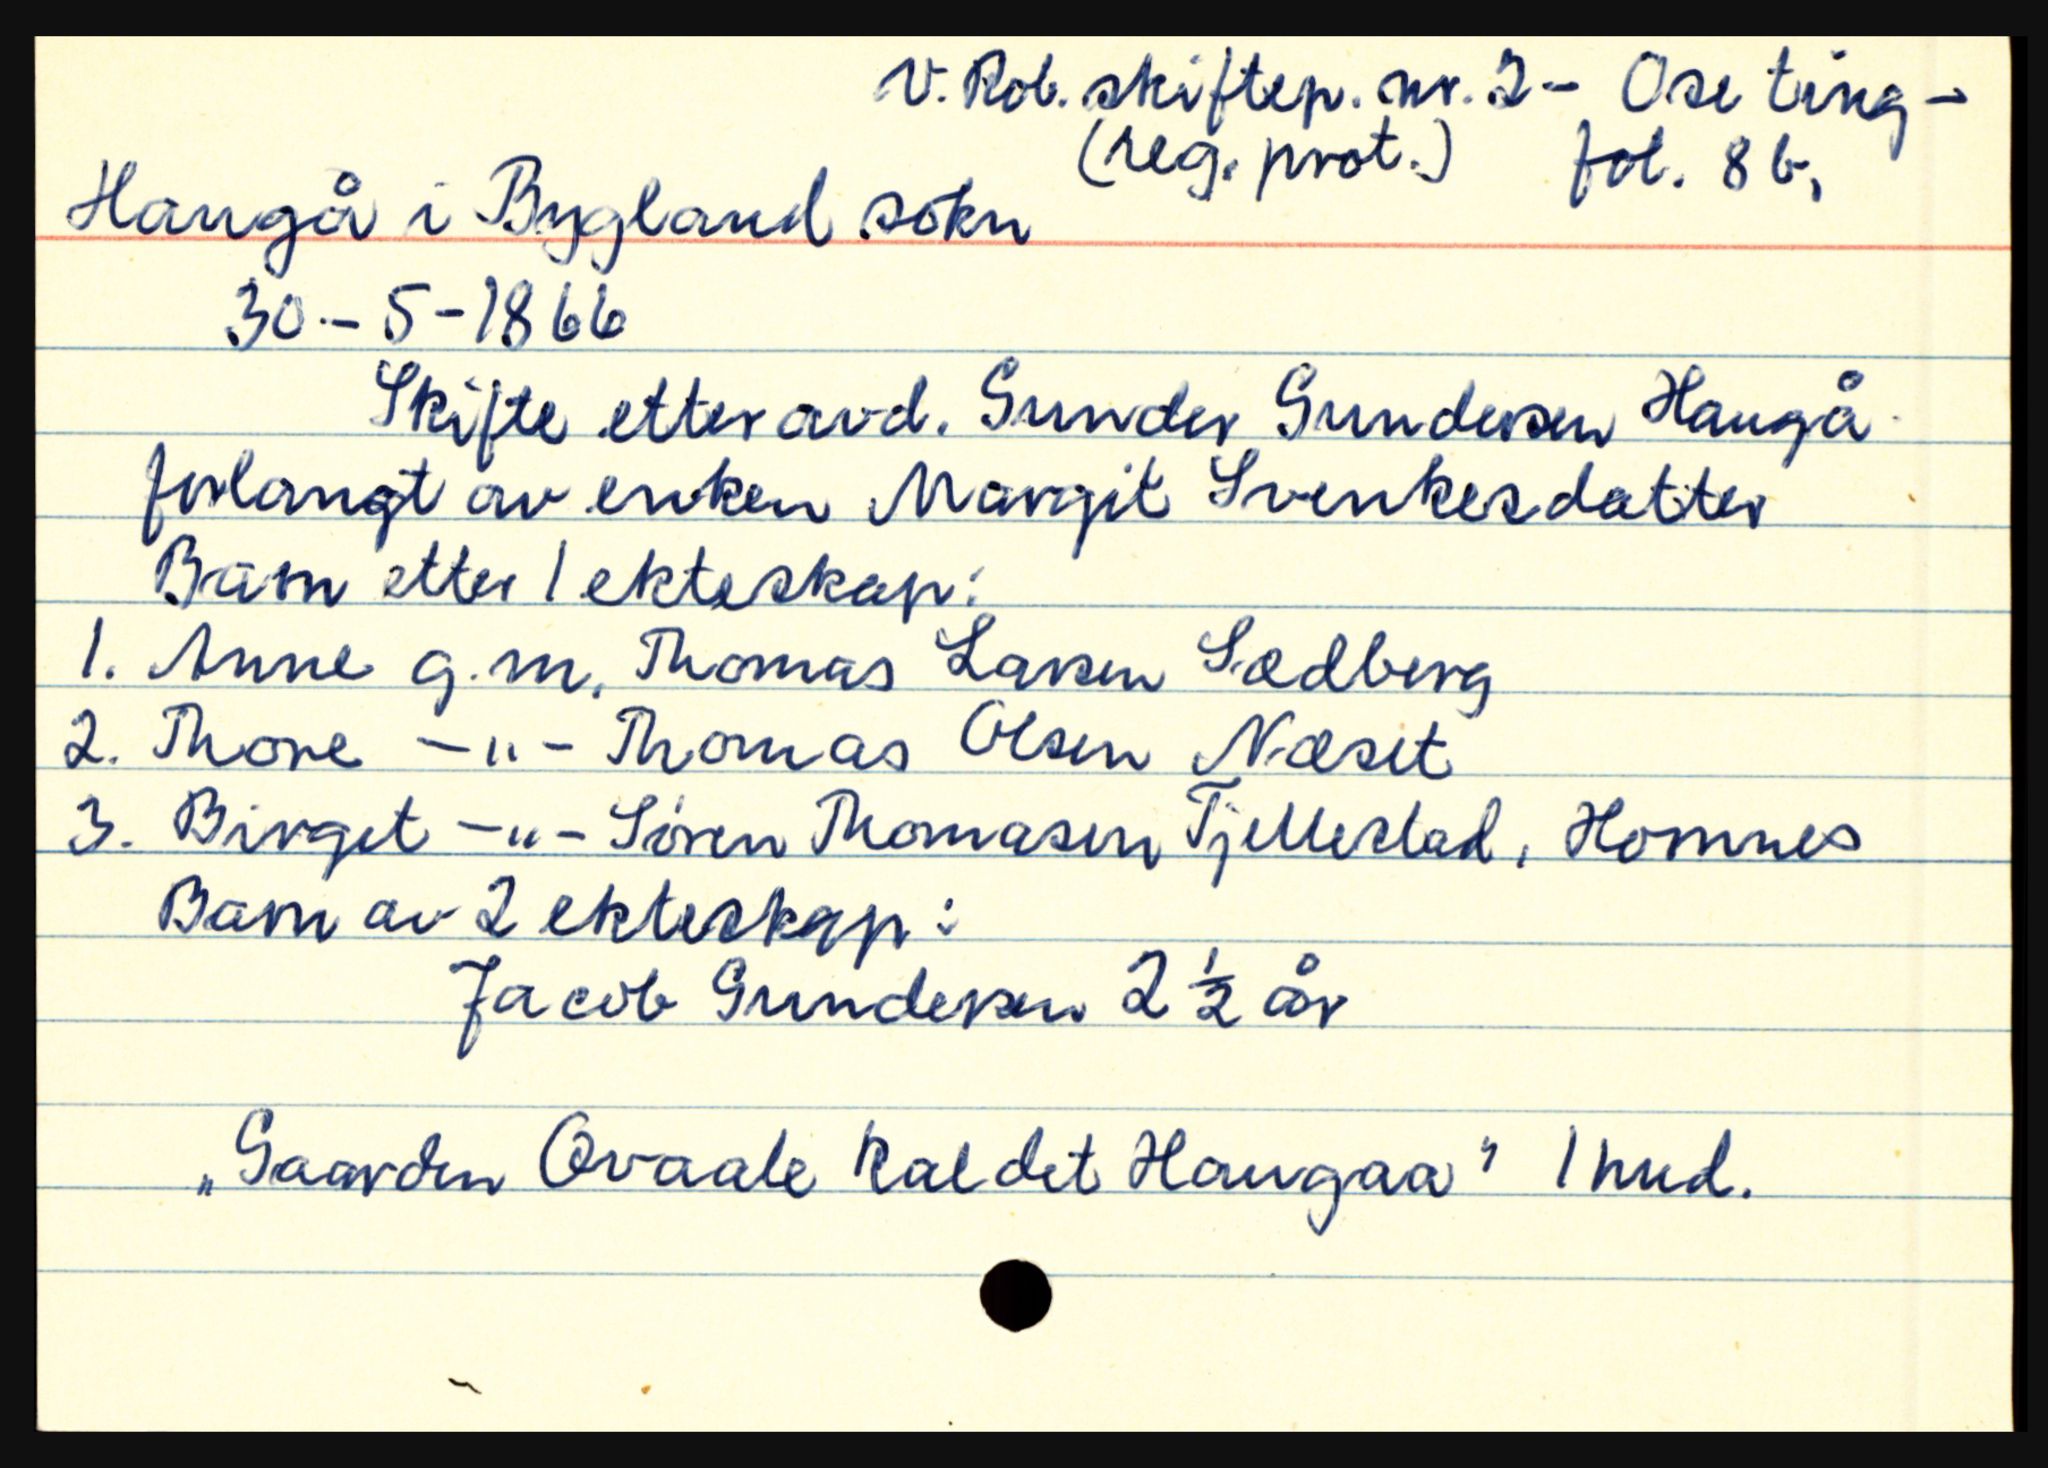 V. Rob. skiftep. nr. 2 - Ose ting -
(reg. prot.) fol. 8 b.
Haugå i Bygland sokn
30 - 5 - 1866
Skifte etter avd. Gunder Gundersen Haugå
forlangt av enken Margit Svenkesdatter
Barn etter 1 ekteskap:
1. Anne g.m. Thomas Larsen Sædberg
2. Thore -"- Thomas Olsen Næset
3. Birget -"- Søren Thomasen Tjellestad, Homnes
Barn av 2 ekteskap:
Jacob Gundersen 2 1/2 år
„Gaarden Ovaale kaldet Haugaa" 1 hud.